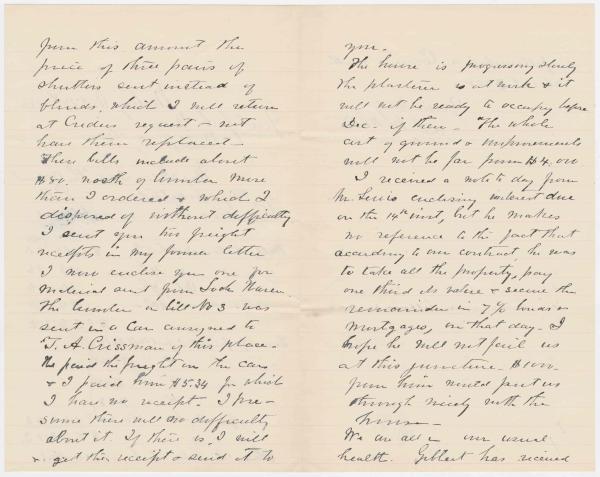 from this amount the
price of three pairs of
shutters sent instead of
blinds, which I will return
at Creders request & not
have them replaced—
These bills include about
$80, worth of lumber more
than I ordered & which I
disposed of without difficulty
I sent you two freight
receipts in my former letter
I now enclose you one for
material sent from Lock Haven
The lumber in bill No 3 was
sent in a Car consigned to
T. A Crissman of this place—
He paid the freight on the car
& I paid him $5.34 for which
I have no receipt. I pre-
sume there will no difficulty
about it. If there is, I will
get the receipt & send it to
you.
The house is progressing slowly
the plasterer is at work & it
will not be ready to occupy before
Dec. if then— The whole
cost of ground & improvements
will not be far from $4,000
I received a note to day from
Mr. Lewis enclosing interest due
on the 14th inst, but he makes
no reference to the fact that
according to our contract he was
to take all the property, pay
one third its value & secure the
remainder in 7% bonds or
mortgages, on that day— I
hope he will not fail us
at this juncture—
from him would put us
through nicely with the
house—
We are all in our usual
health. Gilbert has received